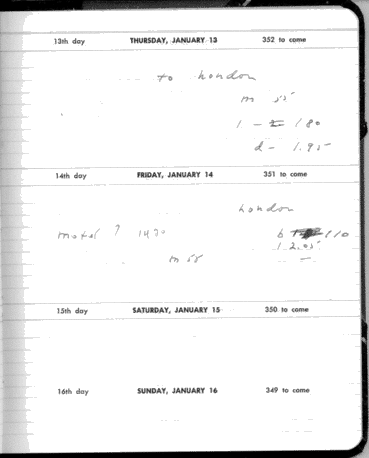 13th day THURSDAY, JANUARY 13 352 to come
to London
m 55
1 - 2 180
d - 1.95
14th day FRIDAY, JANUARY 14 351 to come
London
motel 7 1470
b 110
1 2.05
m 55
15th day SATURDAY, JANUARY 15 350 to come
16th day SUNDAY, JANUARY 16 349 to come